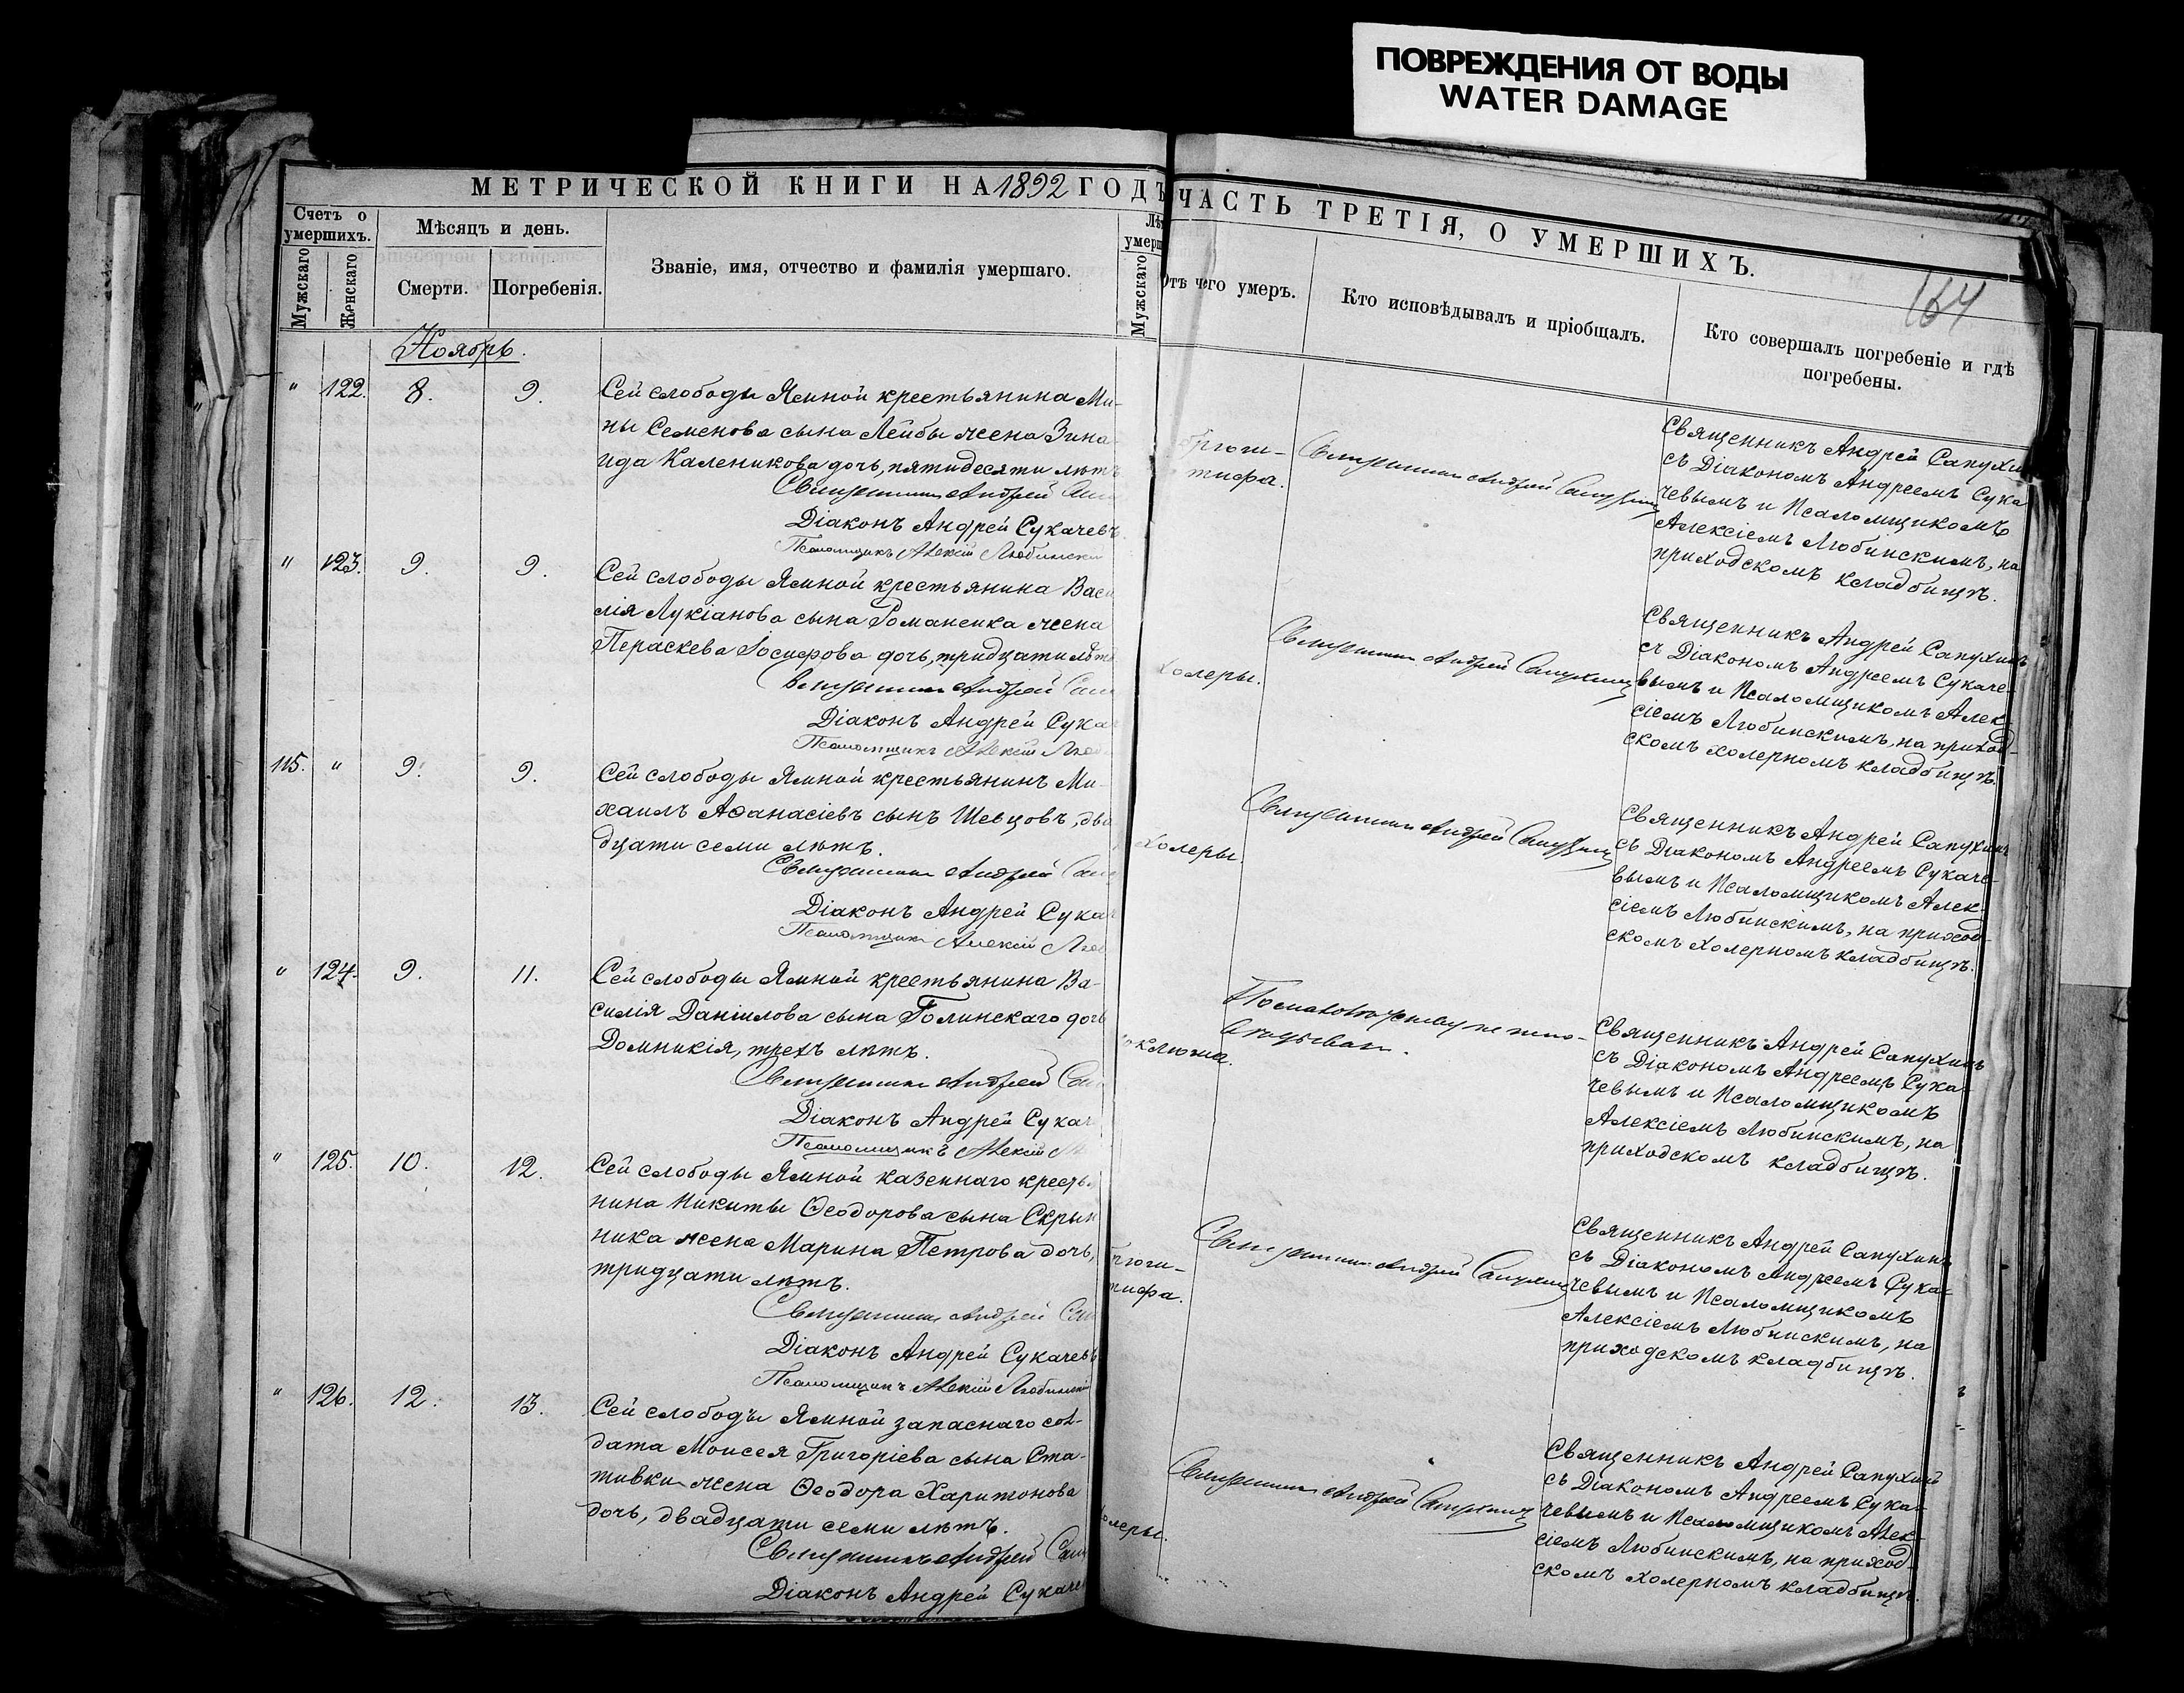 ПОВРЕЖДЕНИЯ ОТ ВОДЫ
WATER DAMAGE
МЕТРИЧЕСКОЙ КНИГИ НА 1892 ГОДЪ
ЧАСТЬ ТРЕТІЯ, О УМЕРШИХЪ.
164
Счетъ о умершихъ.
Мужскаго
Женскаго
Мѣсяцъ и день.
Смерти.
Погребенія.
Званіе, имя, отчество и фамилія умершаго.
Мужскаго
Отъ чего умеръ.
Кто исповѣдывалъ и пріобщалъ.
Кто совершалъ погребеніе и гдѣ
погребены.
Ноябрь.
" 122. 8. 9.
Сей слободы Ямной крестьянина Ми-
ны Семенова сына Лейбы жена Зина
ида Каленикова дочь, пятидесяти лѣтъ
Священникъ Андрей
Діаконъ Андрей Сукачевъ
Псаломщикъ Алексій Любински
тифа.
Священникъ Андрей Сапухинъ
Священникъ Андрей Сапухи
съ Діакономъ Андреемъ Сука
чевымъ и Псаломщикомъ
Алексіемъ Любинскимъ, на
приходскомъ кладбищѣ.
" 123. 9. 9.
Сей слободы Ямной крестьянина Васи
лія Лукіанова сына Романенка жена
Параскева Іосифова дочь, тридцати лѣтъ
Священникъ Андрей
Діаконъ Андрей Сука
Псаломщикъ Алексій Люб
холеры.
Священникъ Андрей Сапухинъ
Священникъ Андрей Сапухинъ
съ Діакономъ Андреемъ Сукаче-
вымъ и Псаломщикомъ Алек-
сіемъ Любинскимъ, на приход-
скомъ холерномъ кладбищѣ.
115. " 9. 9.
Сей слободы Ямной крестьянинъ Ми-
хаилъ Аѳанасіевъ сынъ Шевцовъ, два
дцати семи лѣтъ.
Священникъ Андрей
Діаконъ Андрей Сукач
Псаломщикъ Алексій Люб
Холеры.
Священникъ Андрей Сапухинъ
Священникъ Андрей Сапухинъ
съ Діакономъ Андреемъ Сукаче-
вымъ и Псаломщикомъ Алек-
сіемъ Любинскимъ, на приход-
скомъ Холерномъ кладбищѣ.
" 124. 9. 11.
Сей слободы Ямной крестьянина Ва-
силія Даніилова сына Голинскаго дочь
Домникія, трехъ лѣтъ.
Священникъ Андрей
Діаконъ Андрей Сукач
Псаломщикъ Алексій
коклюша.
По малолѣтству не испо-
вѣдыван.
Священникъ Андрей Сапухинъ
съ Діакономъ Андреемъ Сука
чевымъ и Псаломщикомъ
Алексіемъ Любинскимъ, на
приходскомъ кладбищѣ.
" 125. 10. 12.
Сей слободы Ямной казеннаго крестья
нина Никиты Ѳеодорова сына Скрын
ника жена Марина Петрова дочь,
тридцати лѣтъ.
Священникъ Андрей
Діаконъ Андрей Сукачевъ
Псаломщикъ Алексій Любинскій
тифа.
Священникъ Андрей Сапухинъ
Священникъ Андрей Сапухинъ
съ Діакономъ Андреемъ Сука-
чевымъ и Псаломщикомъ
Алексіемъ Любинскимъ, на
приходскомъ кладбищѣ.
" 126. 12. 13.
Сей слободы Ямной запаснаго сол-
дата Моисея Григоріева сына Ста-
тивки жена Ѳеодора Харитонова
дочь, двадцати семи лѣтъ.
Священникъ Андрей
Діаконъ Андрей Сукачев
холеры.
Священникъ Андрей Сапухинъ
Священникъ Андрей Сапухинъ
съ Діакономъ Андреемъ Сука-
чевымъ и Псаломщикомъ Алек-
сіемъ Любинскимъ, на приход-
скомъ холерномъ кладбищѣ.